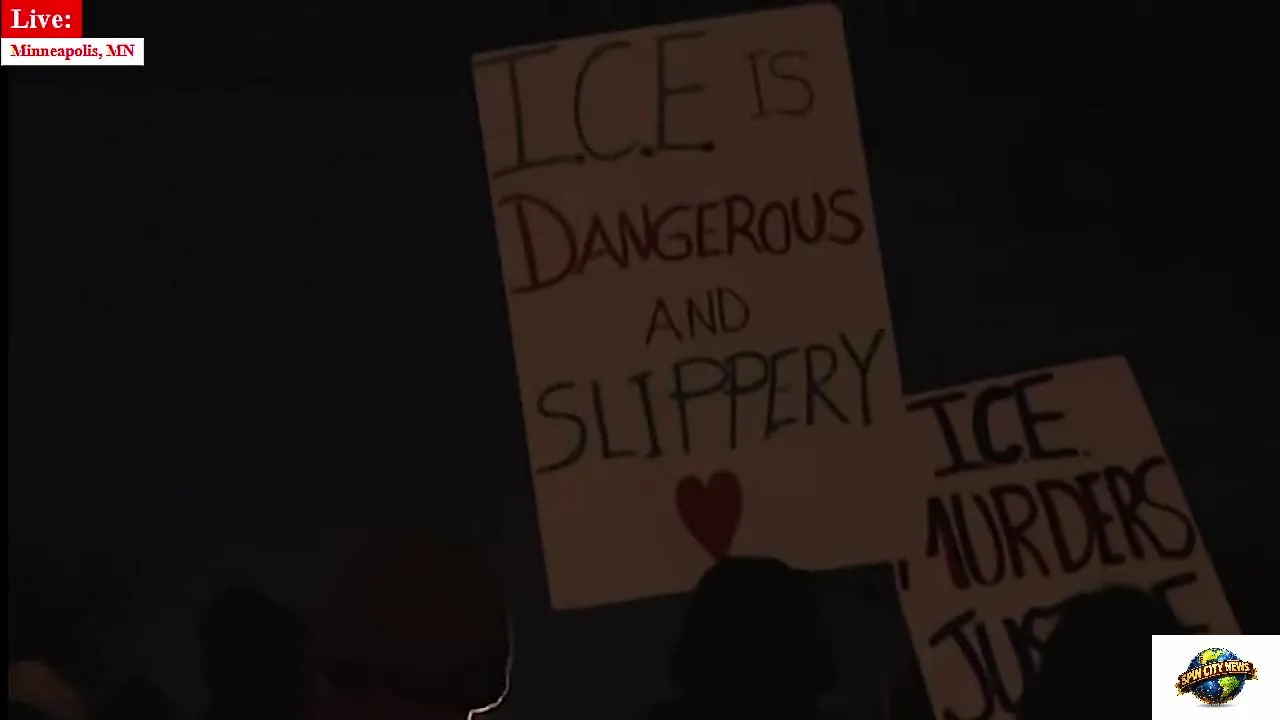 Live:
Minneapolis, MN
I.C.E IS
DANGEROUS
AND
SLIPPERY
I.C.E.
MURDERS
SPIN CITY NEWS